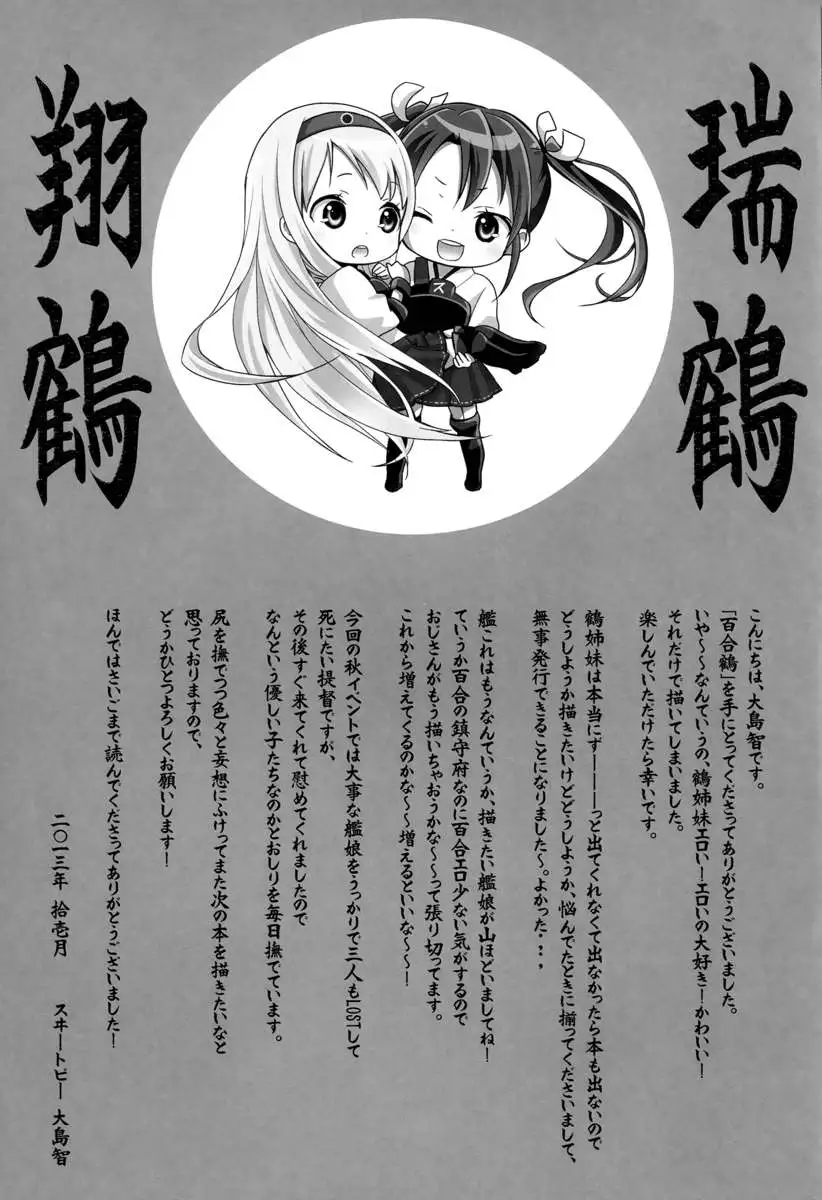 瑞鶴
翔鶴
ス
こんにちは、大島智です。
「百合鶴」を手にとってくださってありがとうございました。
いや～～なんていうの、鶴姉妹エロい！エロいの大好き！かわいい！
それだけで描いてしまいました。
楽しんでいただけたら幸いです。
鶴姉妹は本当にず―――っと出てくれなくて出なかったら本も出ないので
どうしようか描きたいけどどうしようか、悩んでたときに揃ってくださいまして、
無事発行できることになりました～。よかった…，
艦これはもうなんていうか、描きたい艦娘が山ほどいましてね！
ていうか百合の鎮守府なのに百合エロ少ない気がするので
おじさんがもう描いちゃおうかな～～って張り切ってます。
これから増えてくるのかな～～増えるといいな～～！
今回の秋イベントでは大事な艦娘をうっかりで三人もLOSTして
死にたい提督ですが、
その後すぐ来てくれて慰めてくれましたので
なんという優しい子たちなのかとおしりを毎日撫でています。
尻を撫でつつ色々と妄想にふけってまた次の本を描きたいなと
思っておりますので、
どうかひとつよろしくお願いします！
ほんではさいごまで読んでくださってありがとうございました！
二〇一三年 拾壱月　スヰートピー 大島智